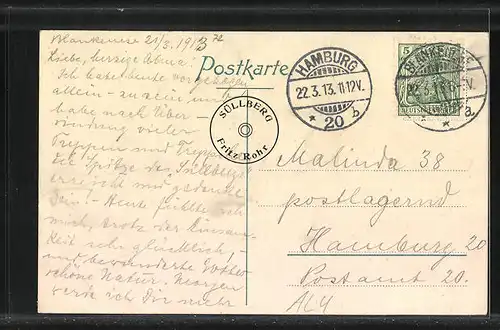 Blankenese 21/3. 1913
Liebe, herzige Alma!
Ich habe heute vorgehabt
allein - zu sein und
habe nach Über-
windung vieler
Treppen und Treppen
die Spitze des Süllbergs
erreicht und gedenke
Dein! - Heute fühlte ich
mich, trotz der Einsam-
keit sehr glücklich,
und bewunderte Gottes
schöne Natur. Morgen
werde ich Dir mehr
Postkarte
SÜLLBERG
Fritz Rohr
HAMBURG
22.3.13. 11-12V.
* 20 b
5
BLANKENESE
22.3.13
* a
Malinda 38
postlagernd
Hamburg 20
Postamt 20.